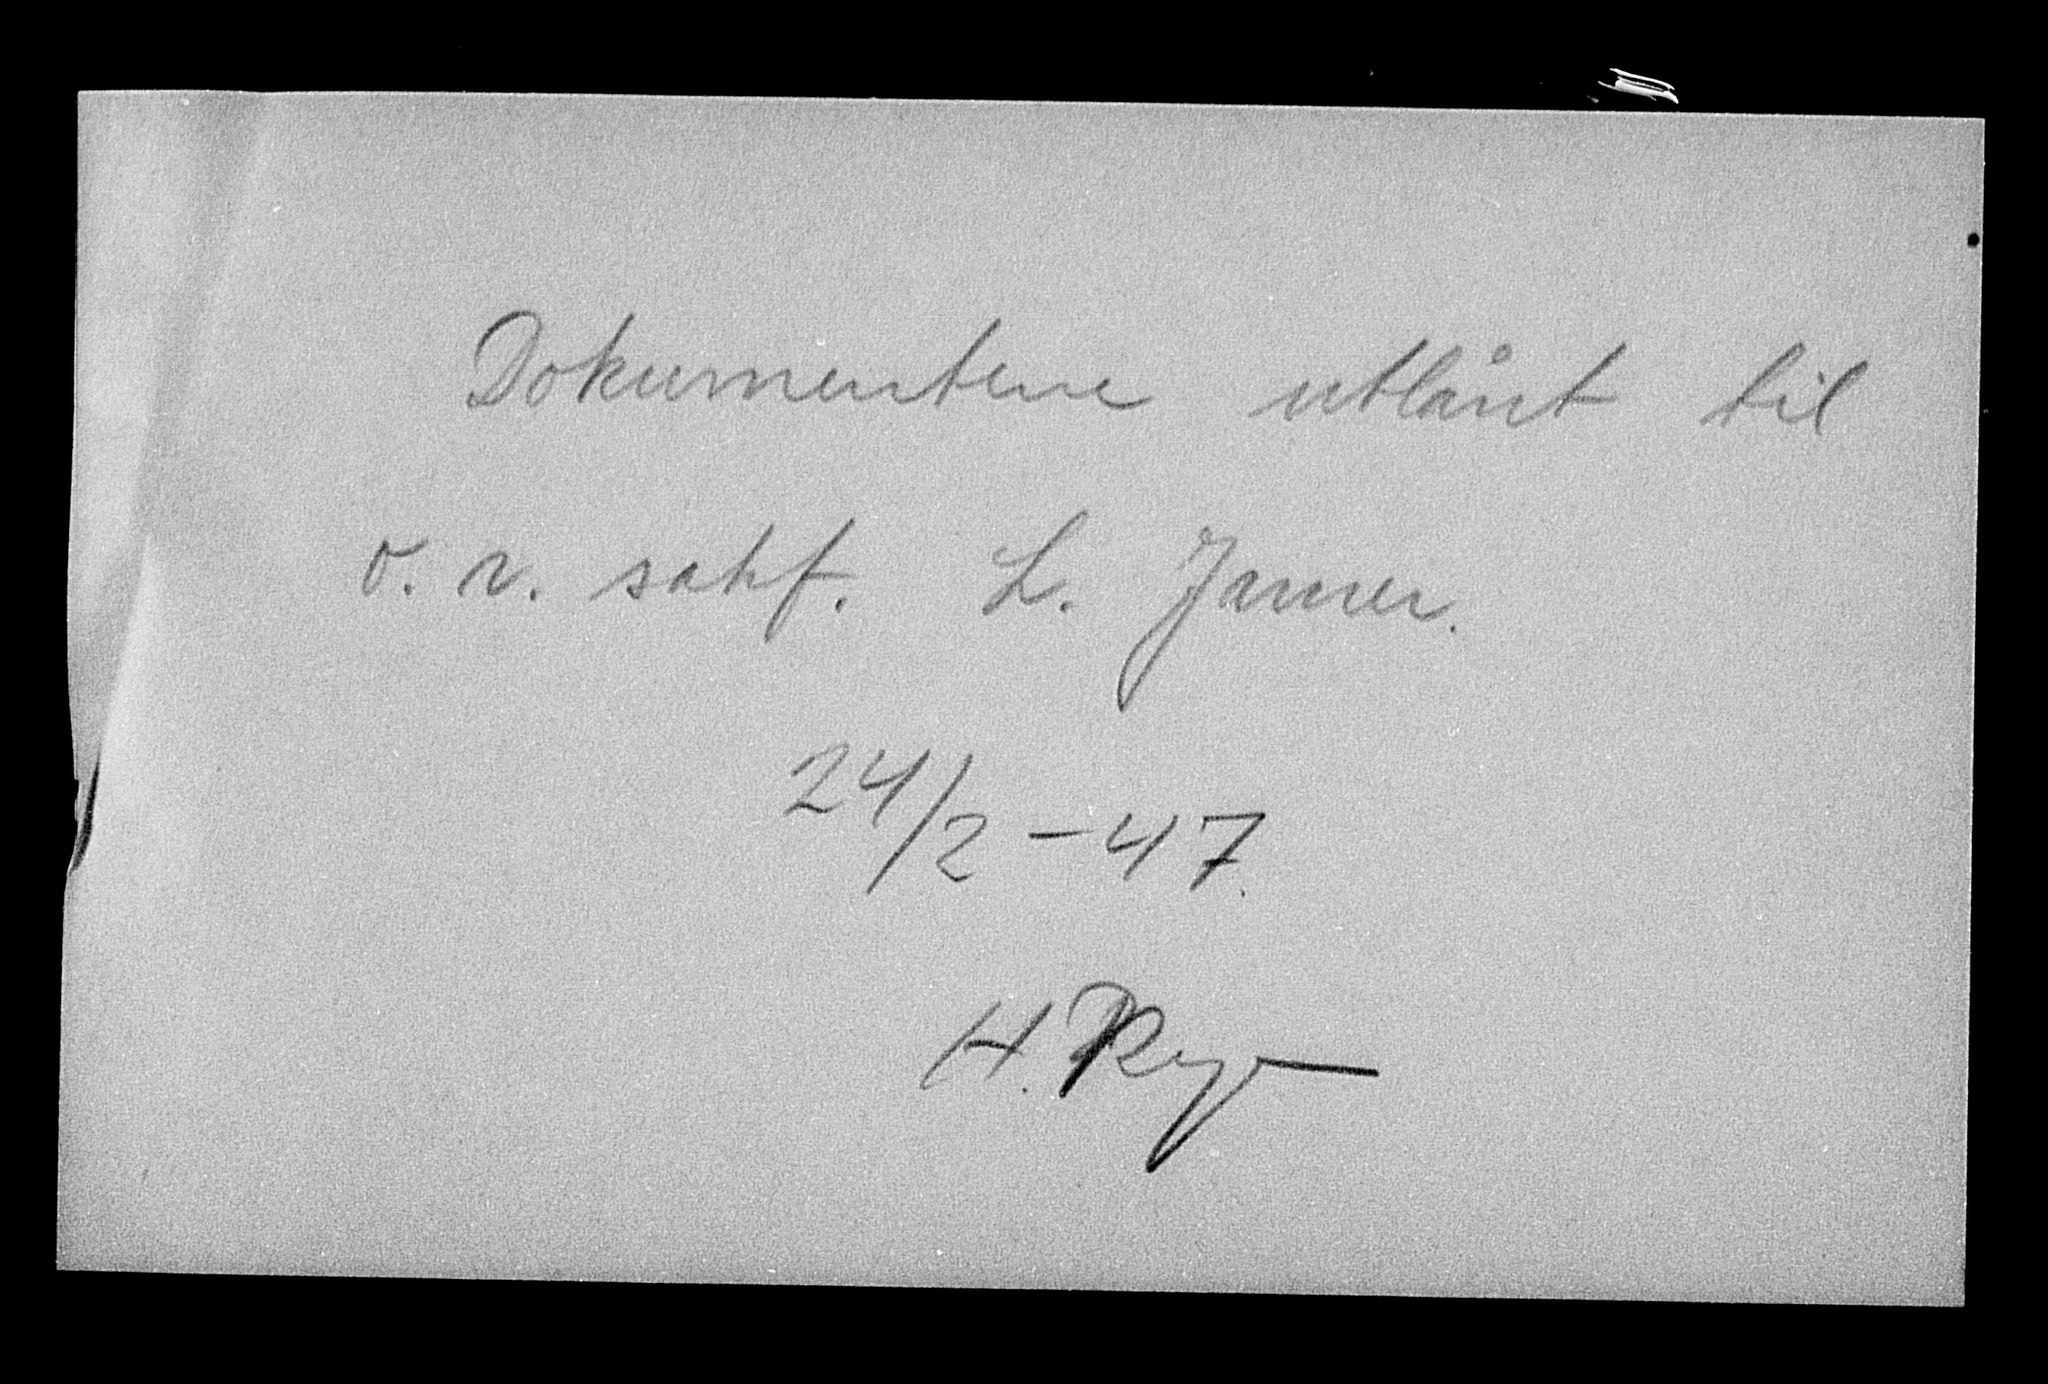 Dokumentene utlånt til
o. r. sakf. L. Jamer.
24/2 - 47.
H.